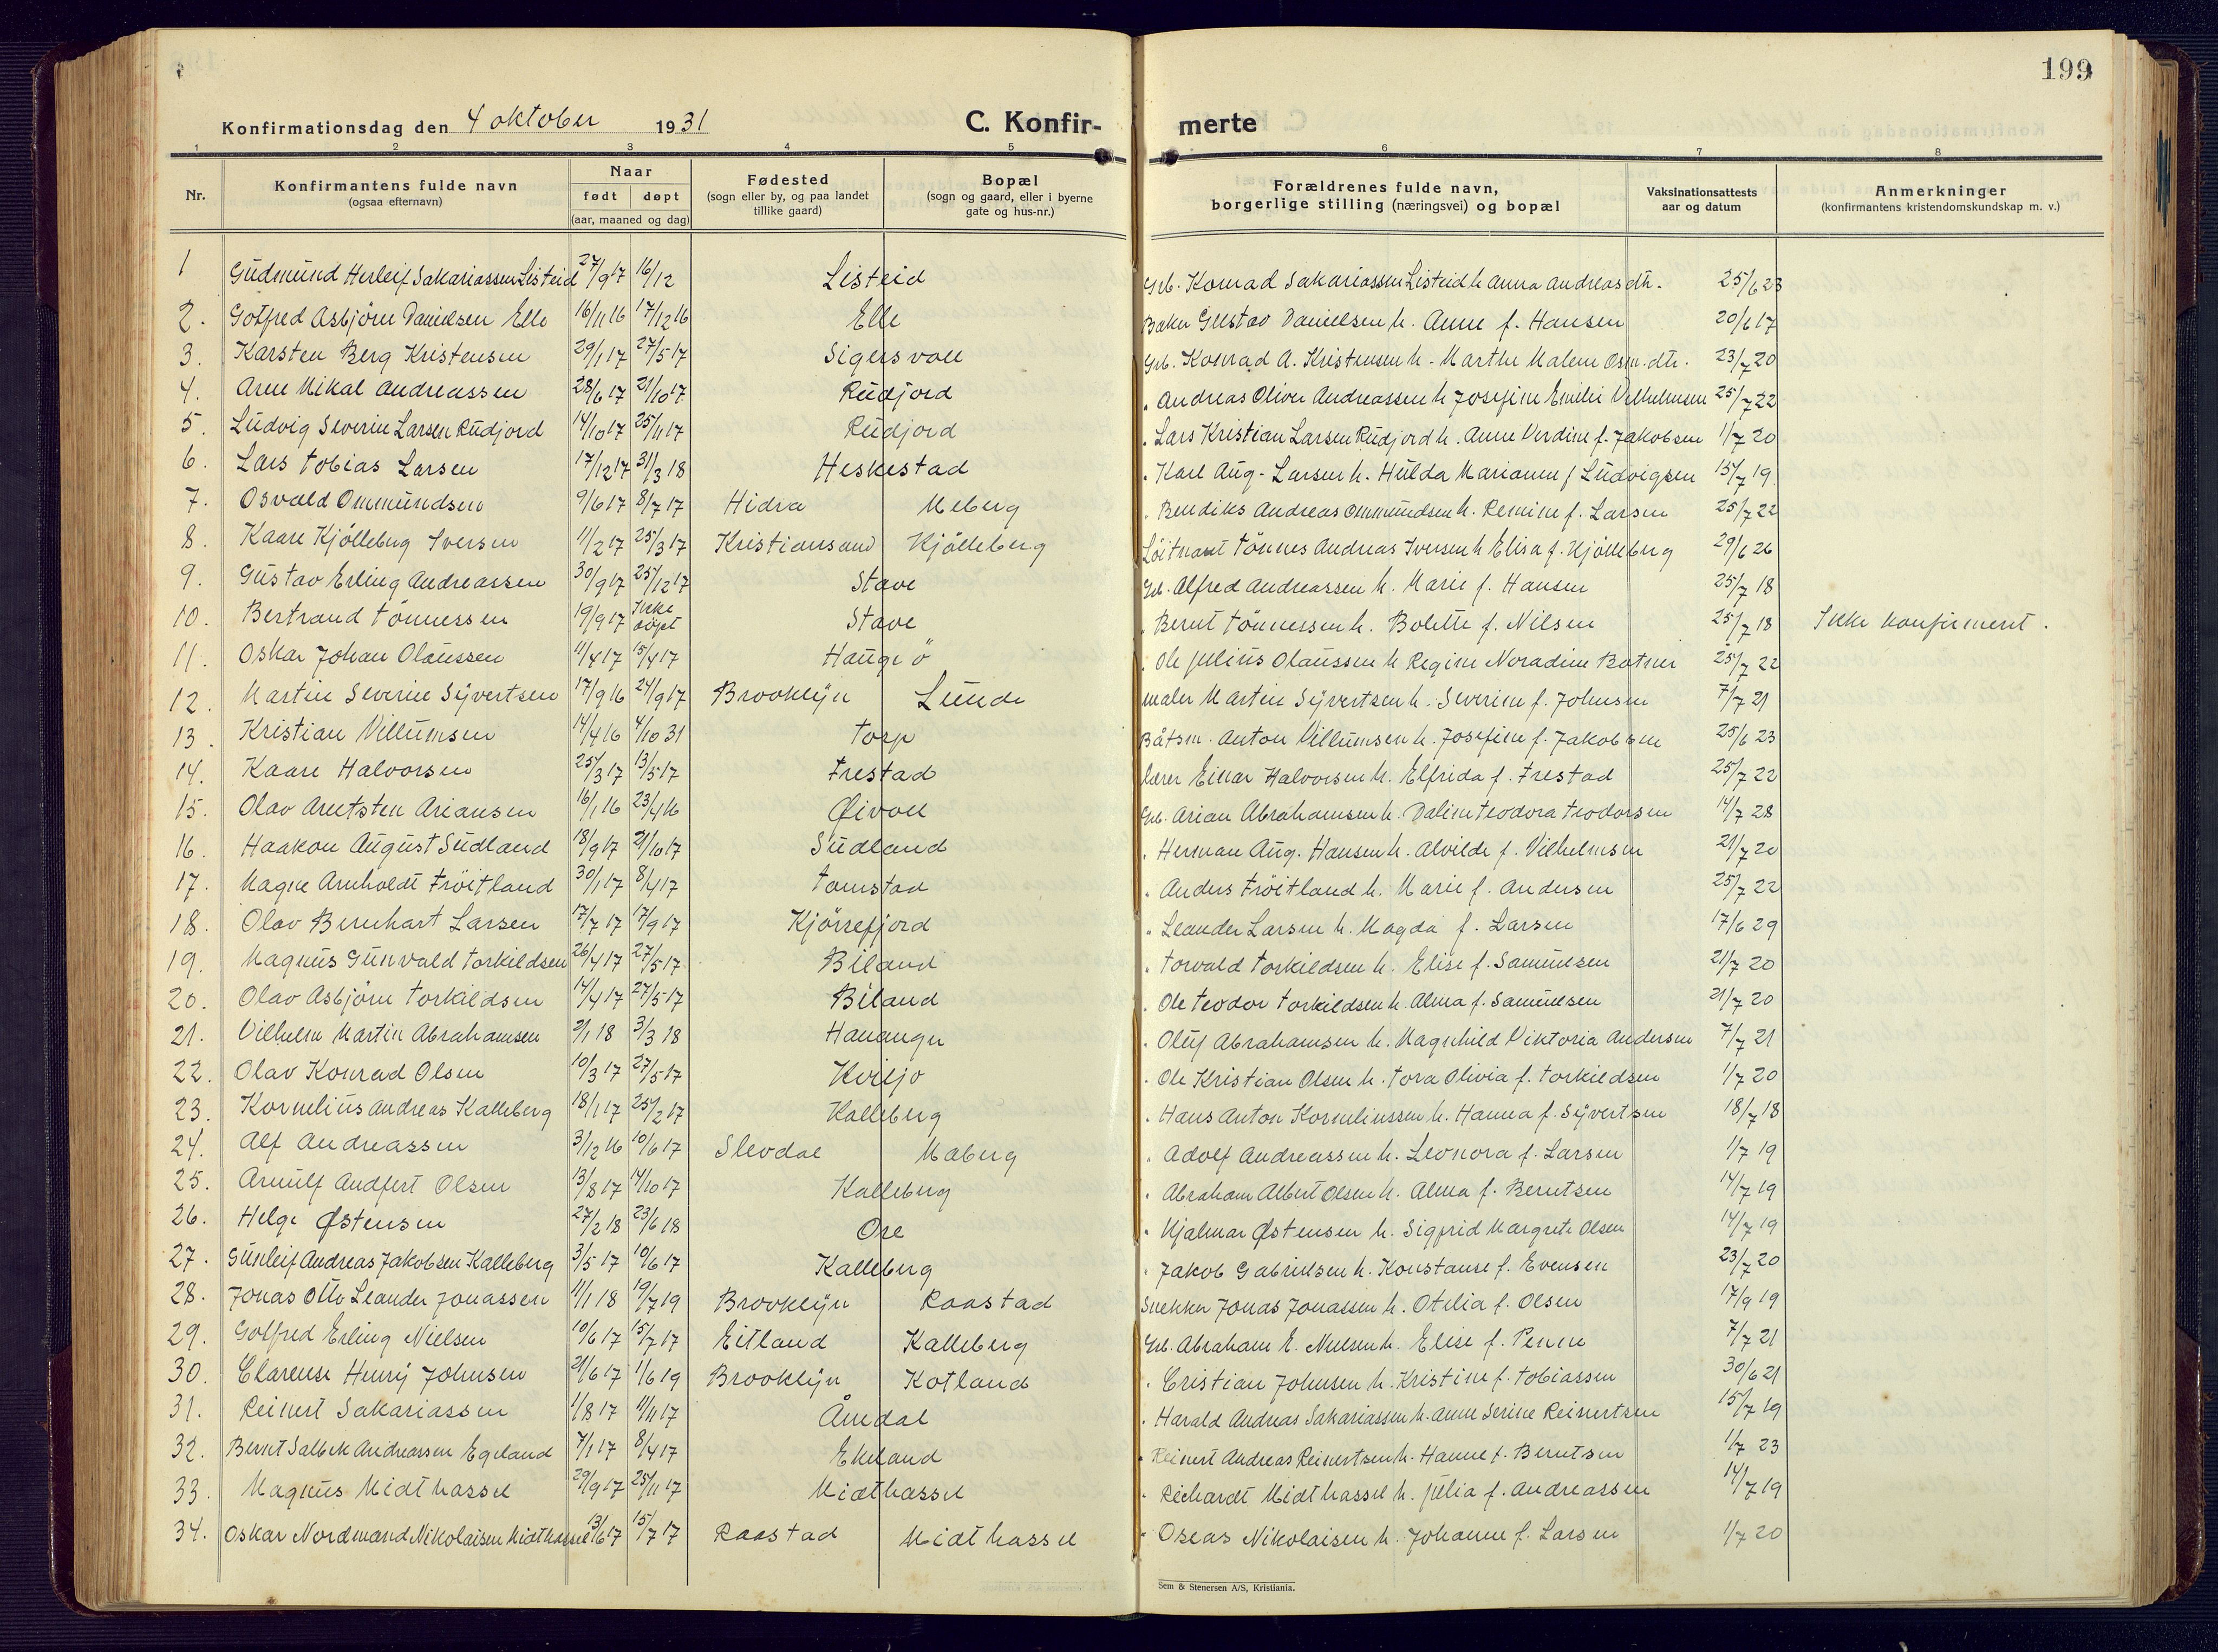 199
Konfirmationsdag den 4 oktober 1931
C. Konfir-merte
1 2 3 4 5 6 7 8
Nr. | Konfirmantens fulde navn (ogsaa efternavn) | Naar født døpt (aar, maaned og dag) | Fødested (sogn eller by, og paa landet tillike gaard) | Bopæl (sogn og gaard, eller i byerne gate og hus-nr.) | Forældrenes fulde navn, borgerlige stilling (næringsvei) og bopæl | Vaksinationsattests aar og datum | Anmerkninger (konfirmantens kristendomskundskap m. v.)
1 Gudmund Herleif Sakariassen Listeid 27/9 17 16/12 Listeid Grb. Konrad Sakariassen Listeid h. Anna Andreasdtr. 25/6 23
2. Gotfred Asbjörn Danielsen Elle 16/11 16 17/12 16 Elle Baker Gustav Danielsen h. Anne f. Hansen 20/6 17
3. Karsten Berg Kristensen 29/1 17 27/5 17 Sigersvoll Grb. Konrad A. Kristensen h. Marthe Malene Osm.dtr. 23/7 20
4. Arne Mikal Andreassen 28/6 17 21/10 17 Rudjord " Andreas Oliver Andreassen h. Josefine Emilie Vilhelmsen 25/7 22
5. Ludvig Severin Larsen Rudjord 14/10 17 25/11 17 Rudjord " Lars Kristian Larsen Rudjord h. Anne Verdine f. Jakobsen 1/7 20
6. Lars Tobias Larsen 17/12 17 31/3 18 Heskestad " Karl Aug. Larsen h. Hulda Marianne f. Ludvigsen 15/7 19
7. Osvald Ommundsen 9/6 17 8/7 17 Hidra Meberg " Bendiks Andreas Ommundsen h. Remine f. Larsen 25/7 22
8. Kaare Kjölleberg Iversen 11/2 17 25/3 17 Kristiansand Kjölleberg Löitnant Tönnes Andreas Iversen h. Elisa f. Kjölleberg 29/6 26
9. Gustav Erling Andreassen 30/9 17 25/12 17 Stave Grb. Alfred Andreassen h. Marie f. Hansen 25/7 18
10. Bertrand Tönnessen 19/9 17 Ikke döpt Stave " Bernt Tönnessen h. Bolette f. Nilsen 25/7 18 Ikke konfirmert.
11. Oskar Johan Olaussen 11/4 17 15/4 17 Hauge ö " Ole Julius Olaussen h. Regine Noradine Botner 25/7 22
12. Martin Severin Syvertsen 17/9 16 24/9 17 Brooklyn Lunde maler Martin Syvertsen h. Severine f. Johnsen 7/7 21
13. Kristian Villumsen 14/4 16 4/10 31 Torp Båtsm. Anton Villumsen h. Josefine f. Jakobsen 25/6 23
14. Kaare Halvorsen 25/3 17 13/5 17 Frestad lærer Einar Halvorsen h. Elfrida f. Frestad 25/7 22
15. Olav Arntsten Ariansen 16/1 16 23/4 16 Øivoll Grb. Arian Abrahamsen h. Daline Teodora Teodorsen 14/7 28
16. Haakon August Sudland 18/9 17 21/10 17 Sudland " Herman Aug. Hansen h. Alvilde f. Vilhelmsen 21/7 20
17. Magne Arnholdt Fröitland 30/1 17 8/4 17 Tomstad " Anders Fröitland h. Marie f. Andersen 25/7 22
18. Olav Bernhart Larsen 17/7 17 17/9 17 Kjörrefjord " Leander Larsen h. Magda f. Larsen 17/6 29
19. Magnus Gunvald Torkildsen 26/4 17 27/5 17 Biland " Torvald Torkildsen h. Elise f. Samuelsen 21/7 20
20. Olav Asbjörn Torkildsen 14/4 17 27/5 17 Biland " Ole Teodor Torkildsen h. Alma f. Samuelsen 21/7 20
21. Vilhelm Martin Abrahamsen 2/1 18 3/3 18 Hananger " Oluf Abrahamsen h. Magnhild Viktoria Andersen 7/7 21
22. Olav Konrad Olsen 10/3 17 27/5 17 Kviljo " Ole Kristian Olsen h. Tora Olivia f. Torkildsen 1/7 20
23. Kornelius Andreas Kalleberg 18/1 17 25/2 17 Kalleberg " Hans Anton Korneliussen h. Hanna f. Syvertsen 18/7 18
24. Alf Andreassen 3/12 16 10/6 17 Slevdal Maberg " Adolf Andreassen h. Leonora f. Larsen 1/7 19
25. Arnulf Andfert Olsen 13/8 17 14/10 17 Kalleberg " Abraham Albert Olsen h. Alma f. Berntsen 14/7 19
26. Helge Østensen 27/2 18 23/6 18 Ore " Hjalmar Østensen h. Sigfrid Margrete Olsen 14/7 19
27. Gunleif Andreas Jakobsen Kalleberg 3/5 17 10/6 17 Kalleberg " Jakob Gabrielsen h. Konstanse f. Evensen 23/7 20
28. Jonas Otto Leander Jonassen 11/1 18 19/7 19 Brooklyn Raastad Snekker Jonas Jonassen h. Otelia f. Olsen 17/9 19
29. Golfred Erling Nielsen 10/6 17 15/7 17 Eitland Kalleberg Grb. Abraham E. Nielsen h. Elise f. Penne 7/7 21
30. Clarense Henry Johnsen 21/6 17 1/6 19 Brooklyn Kotland " Cristian Johnsen h. Kristine f. Tobiassen 30/6 21
31. Reinert Sakariassen 1/8 17 11/11 17 Åmdal " Harald Andreas Sakariassen h. Anne Serine Reinertsen 15/7 19
32. Bernt Salbek Andreassen Egeland 7/1 17 8/4 17 Ekeland " Reinert Andreas Reinertsen h. Hanne f. Berntsen 1/7 23
33. Magnus Midthassel 29/9 17 25/11 17 Midthassel " Richardt Midthassel h. Julia f. Andreassen 14/7 19
34. Oskar Nordmand Nikolaisen Midthassel 13/6 17 15/7 17 Raastad Midthassel " Oseas Nikolaisen h. Johanne f. Larsen 1/7 20
Sem & Stenersen A/S, Kristiania.